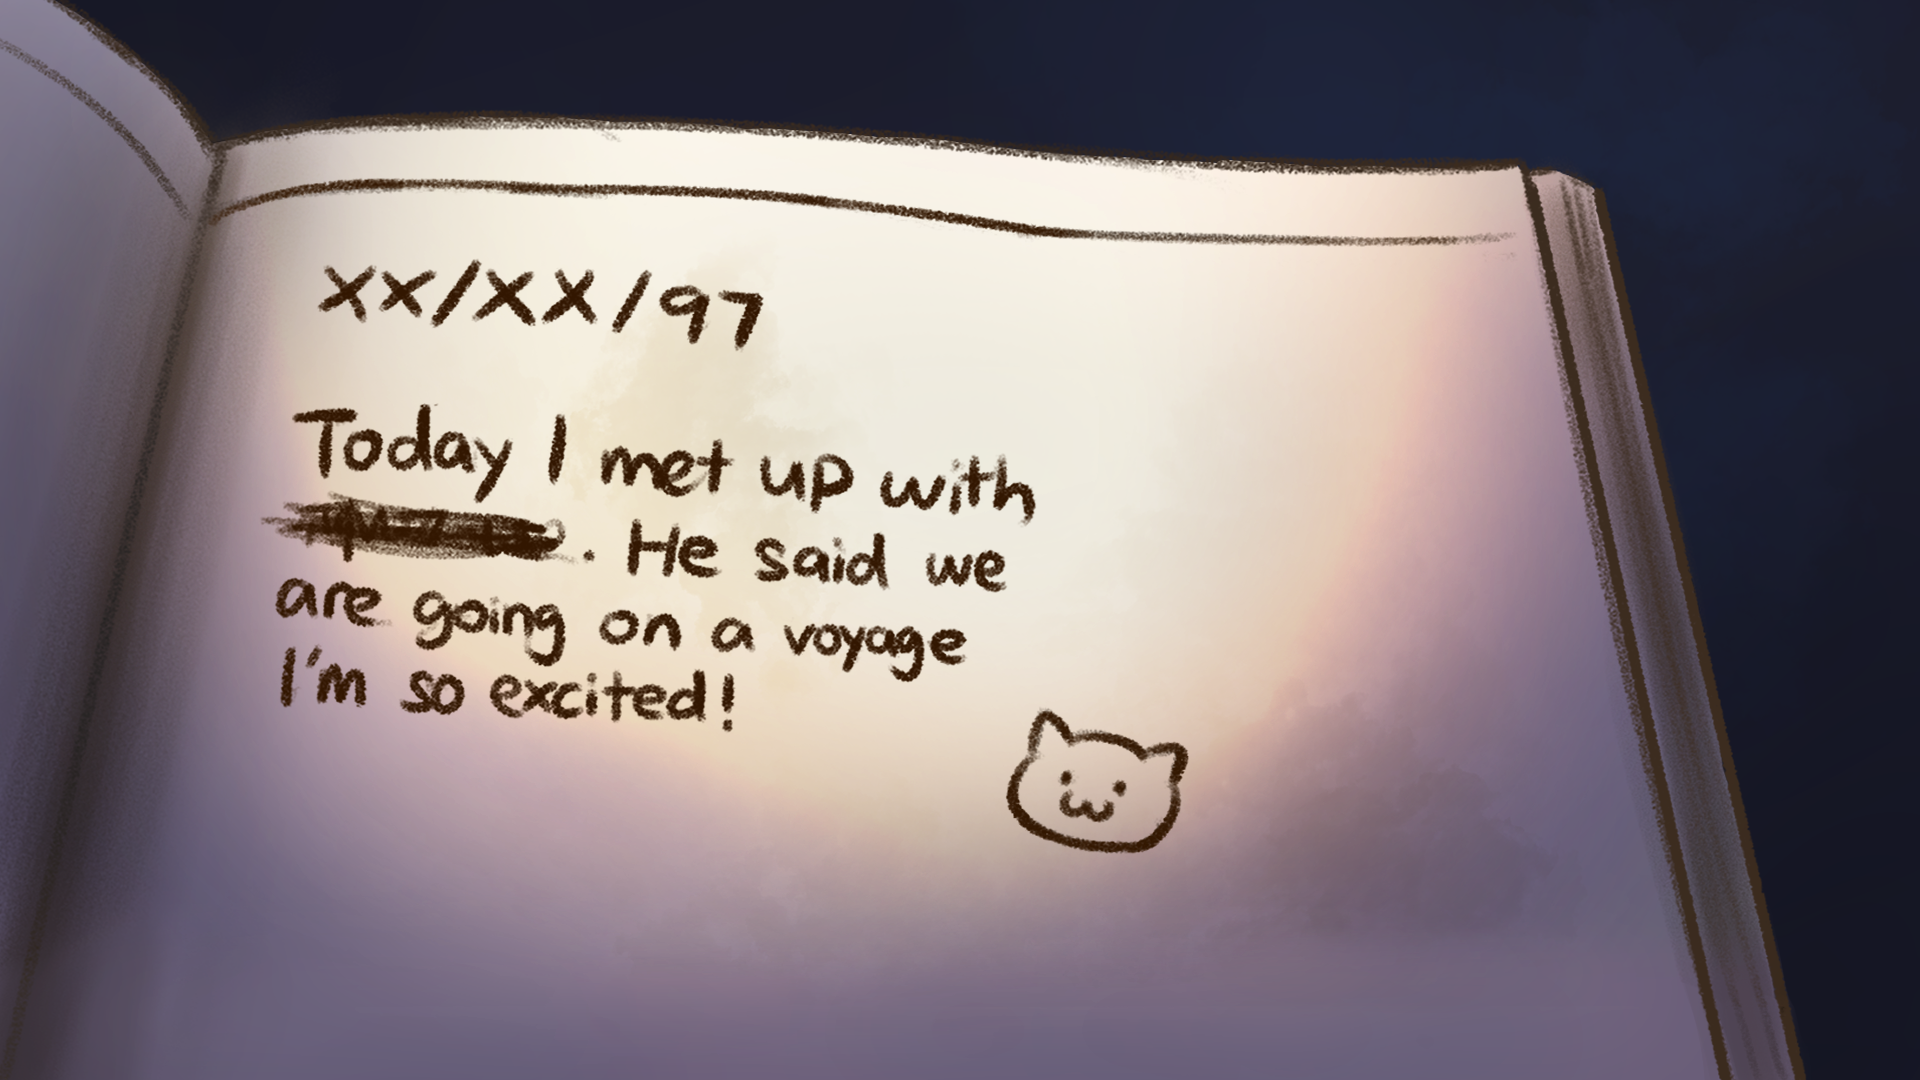 XX/XX/97
Today I met up with
. He said we
are going on a voyage
I'm so excited!